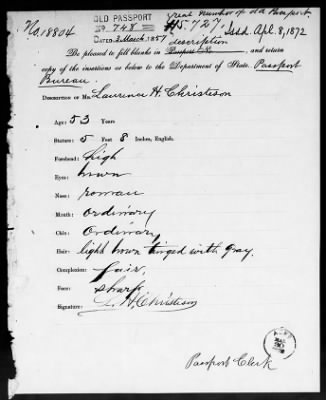 No. 18804
OLD PASSPORT
No 748
DATED 3 March 1857
great number of old Passport
#5.727. Issd. Apl. 8, 1872
description
Be pleased to fill blanks in Passport No., and return
copy of the insertions as below to the Department of State. Passport
Bureau.
DESCRIPTION OF MR. Laurence H. Christeson
Age: 53 Years
Stature: 5 Feet 8 Inches, English.
Forehead: high
Eyes: brown
Nose: roman
Mouth: ordinary
Chin: Ordinary
Hair: light brown tinged with gray.
Complexion: fair,
Face: sharp
Signature: L. H. Christeson
Passport Clerk